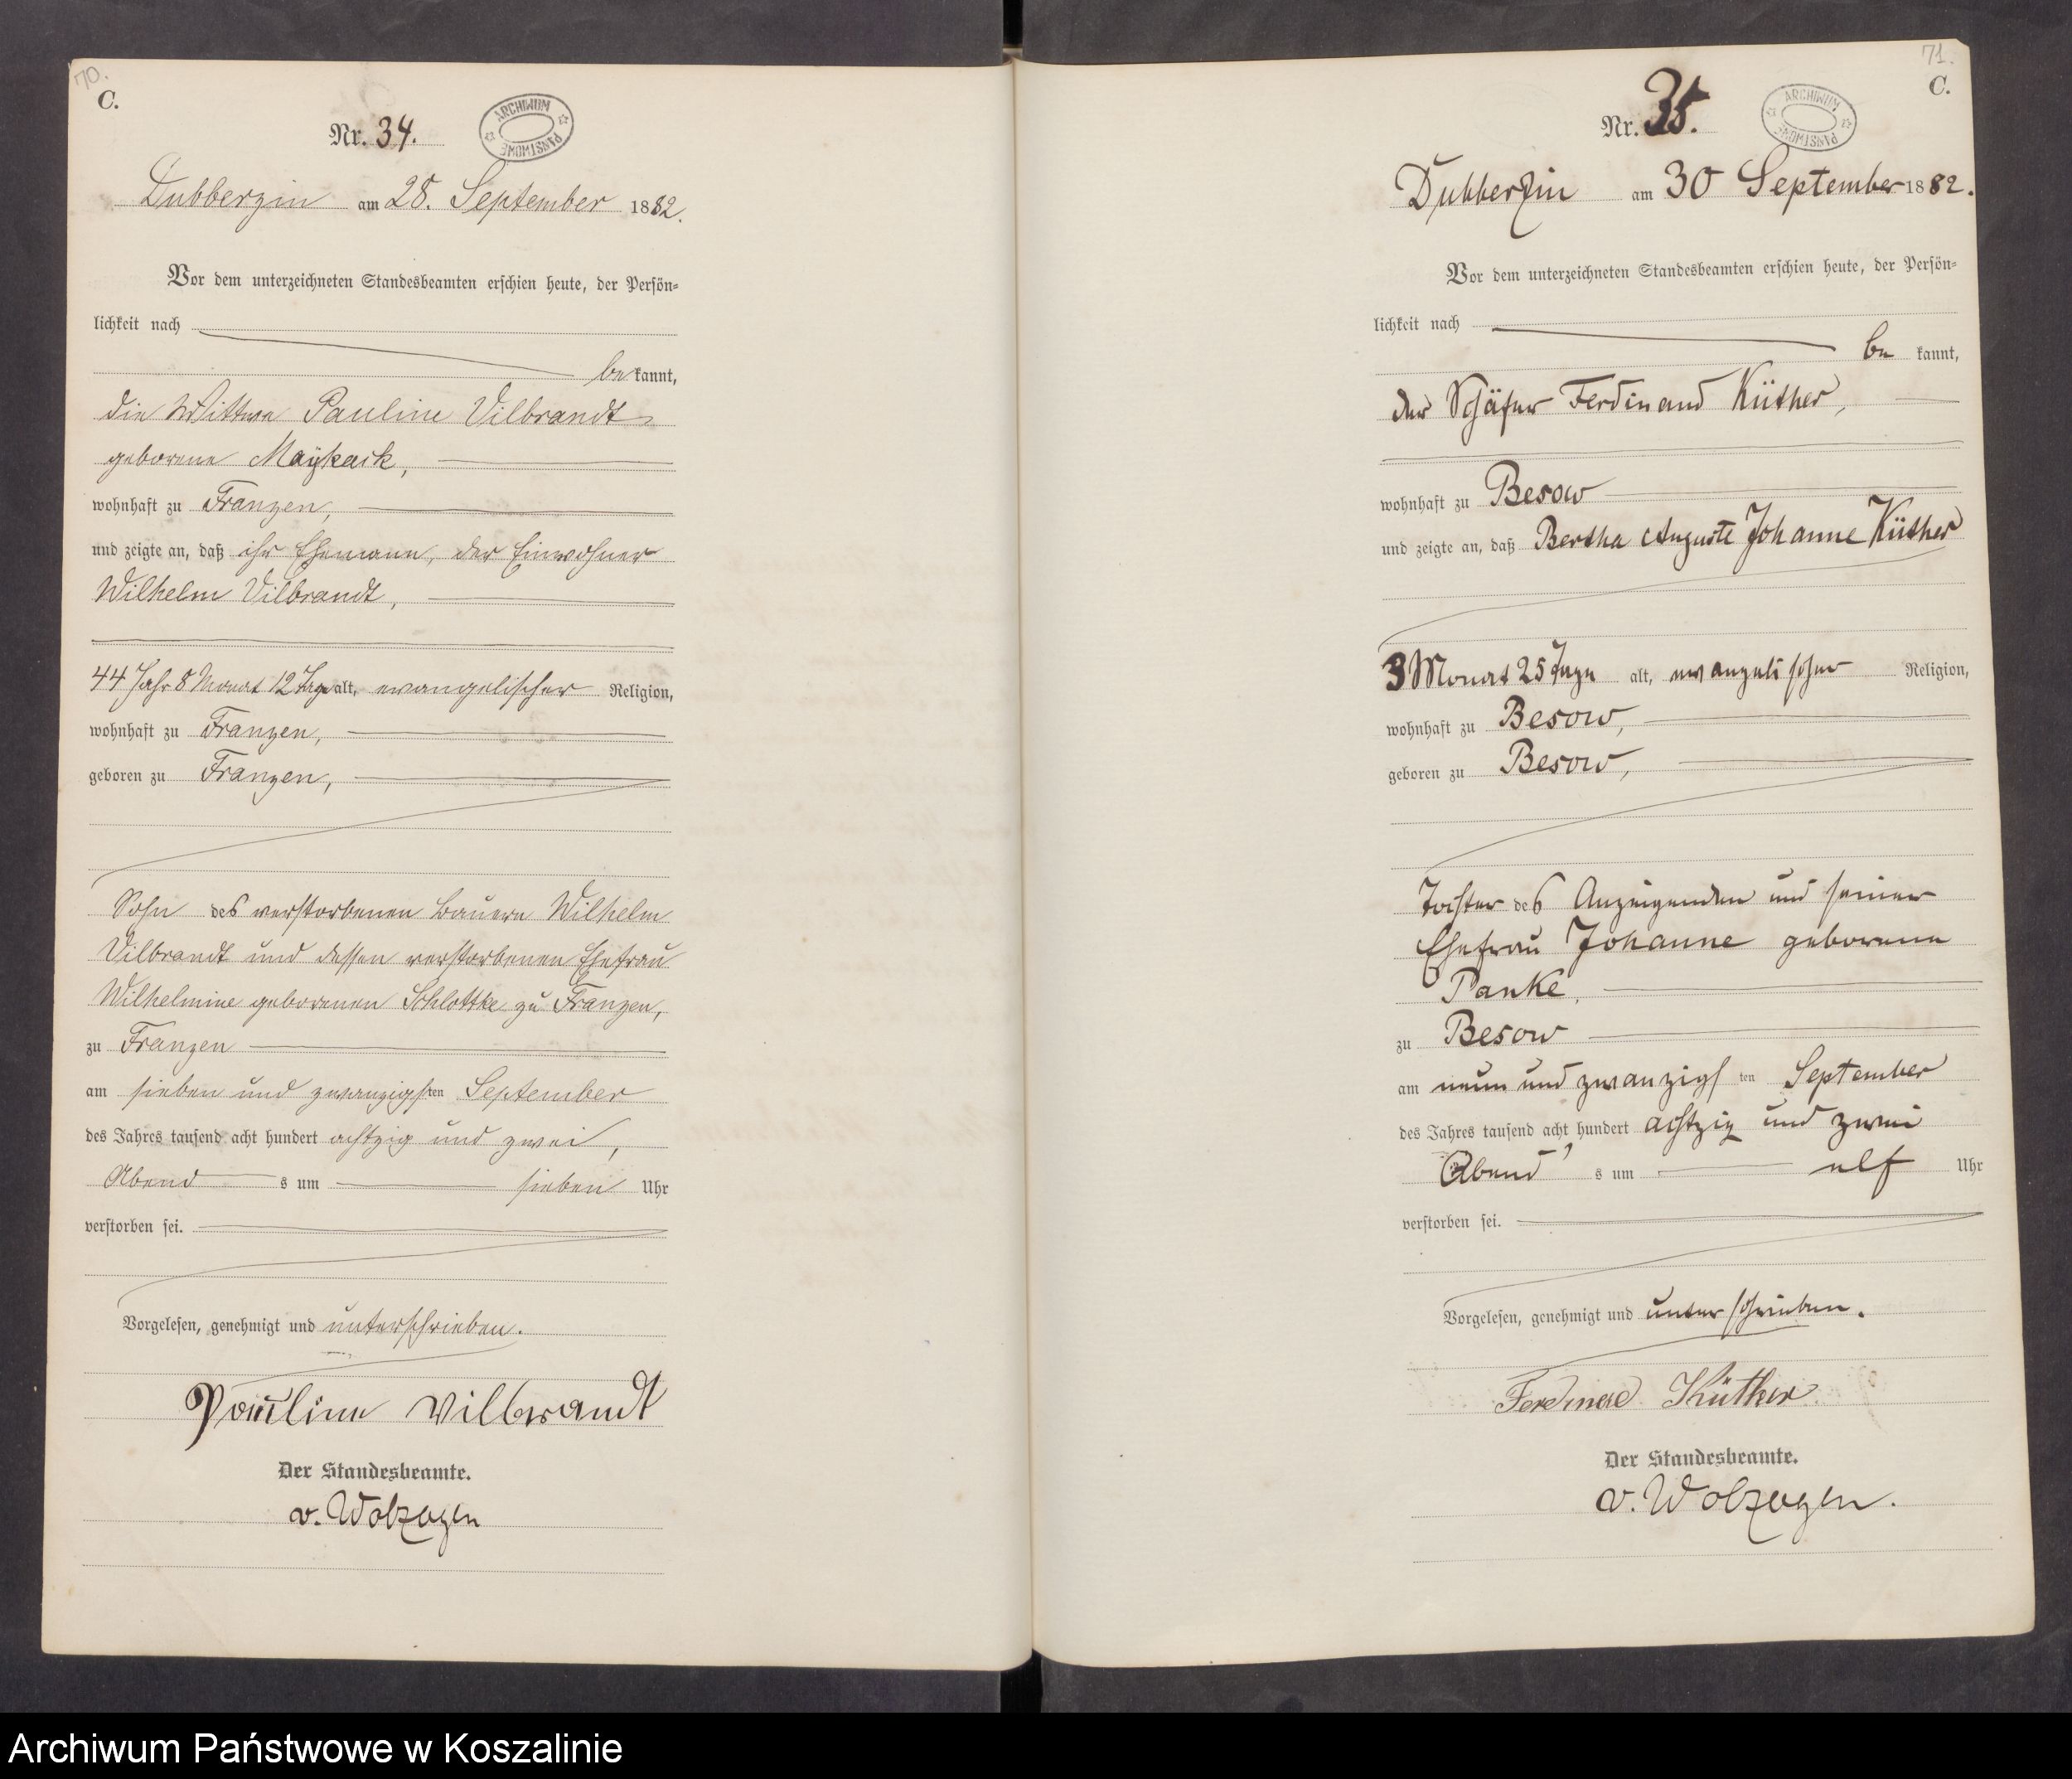 70.
C.
Nr. 34.
ARCHIWUM PAŃSTWOWE
Dubberzin am 28. September 1882.
Vor dem unterzeichneten Standesbeamten erschien heute, der Persön-
lichkeit nach
be kannt,
die Wittwe Pauline Vilbrandt
geborene Maÿkack,
wohnhaft zu Franzen,
und zeigte an, daß ihr Ehemann, der Einwohner
Wilhelm Vilbrandt,
44 Jahr 8 Monat 12 Tage alt, evangelischer Religion,
wohnhaft zu Franzen,
geboren zu Franzen,
Sohn des verstorbenen Bauern Wilhelm
Vilbrandt und dessen verstorbenen Ehefrau
Wilhelmine geborenen Schlottke zu Franzen,
zu Franzen
am sieben und zwanzigsten September
des Jahres tausend acht hundert achtzig und zwei,
Abend s um sieben Uhr
verstorben sei.
Vorgelesen, genehmigt und unterschrieben.
Pauline Vilbrandt
Der Standesbeamte.
v. Wolzogen
71.
C.
Nr. 35.
ARCHIWUM PAŃSTWOWE
Dubberzin am 30 September 1882.
Vor dem unterzeichneten Standesbeamten erschien heute, der Persön-
lichkeit nach
be kannt,
der Schäfer Ferdinand Küther,
wohnhaft zu Besow
und zeigte an, daß Bertha Auguste Johanne Küther
3 Monat 25 Tage alt, evangelischer Religion,
wohnhaft zu Besow,
geboren zu Besow,
Tochter des Anzeigenden und seiner
Ehefrau Johanne geborene
Panke,
zu Besow
am neun und zwanzigsten September
des Jahres tausend acht hundert achtzig und zwei
Abend s um elf Uhr
verstorben sei.
Vorgelesen, genehmigt und unterschrieben.
Ferdinad Küther
Der Standesbeamte.
v. Wolzogen.
Archiwum Państwowe w Koszalinie